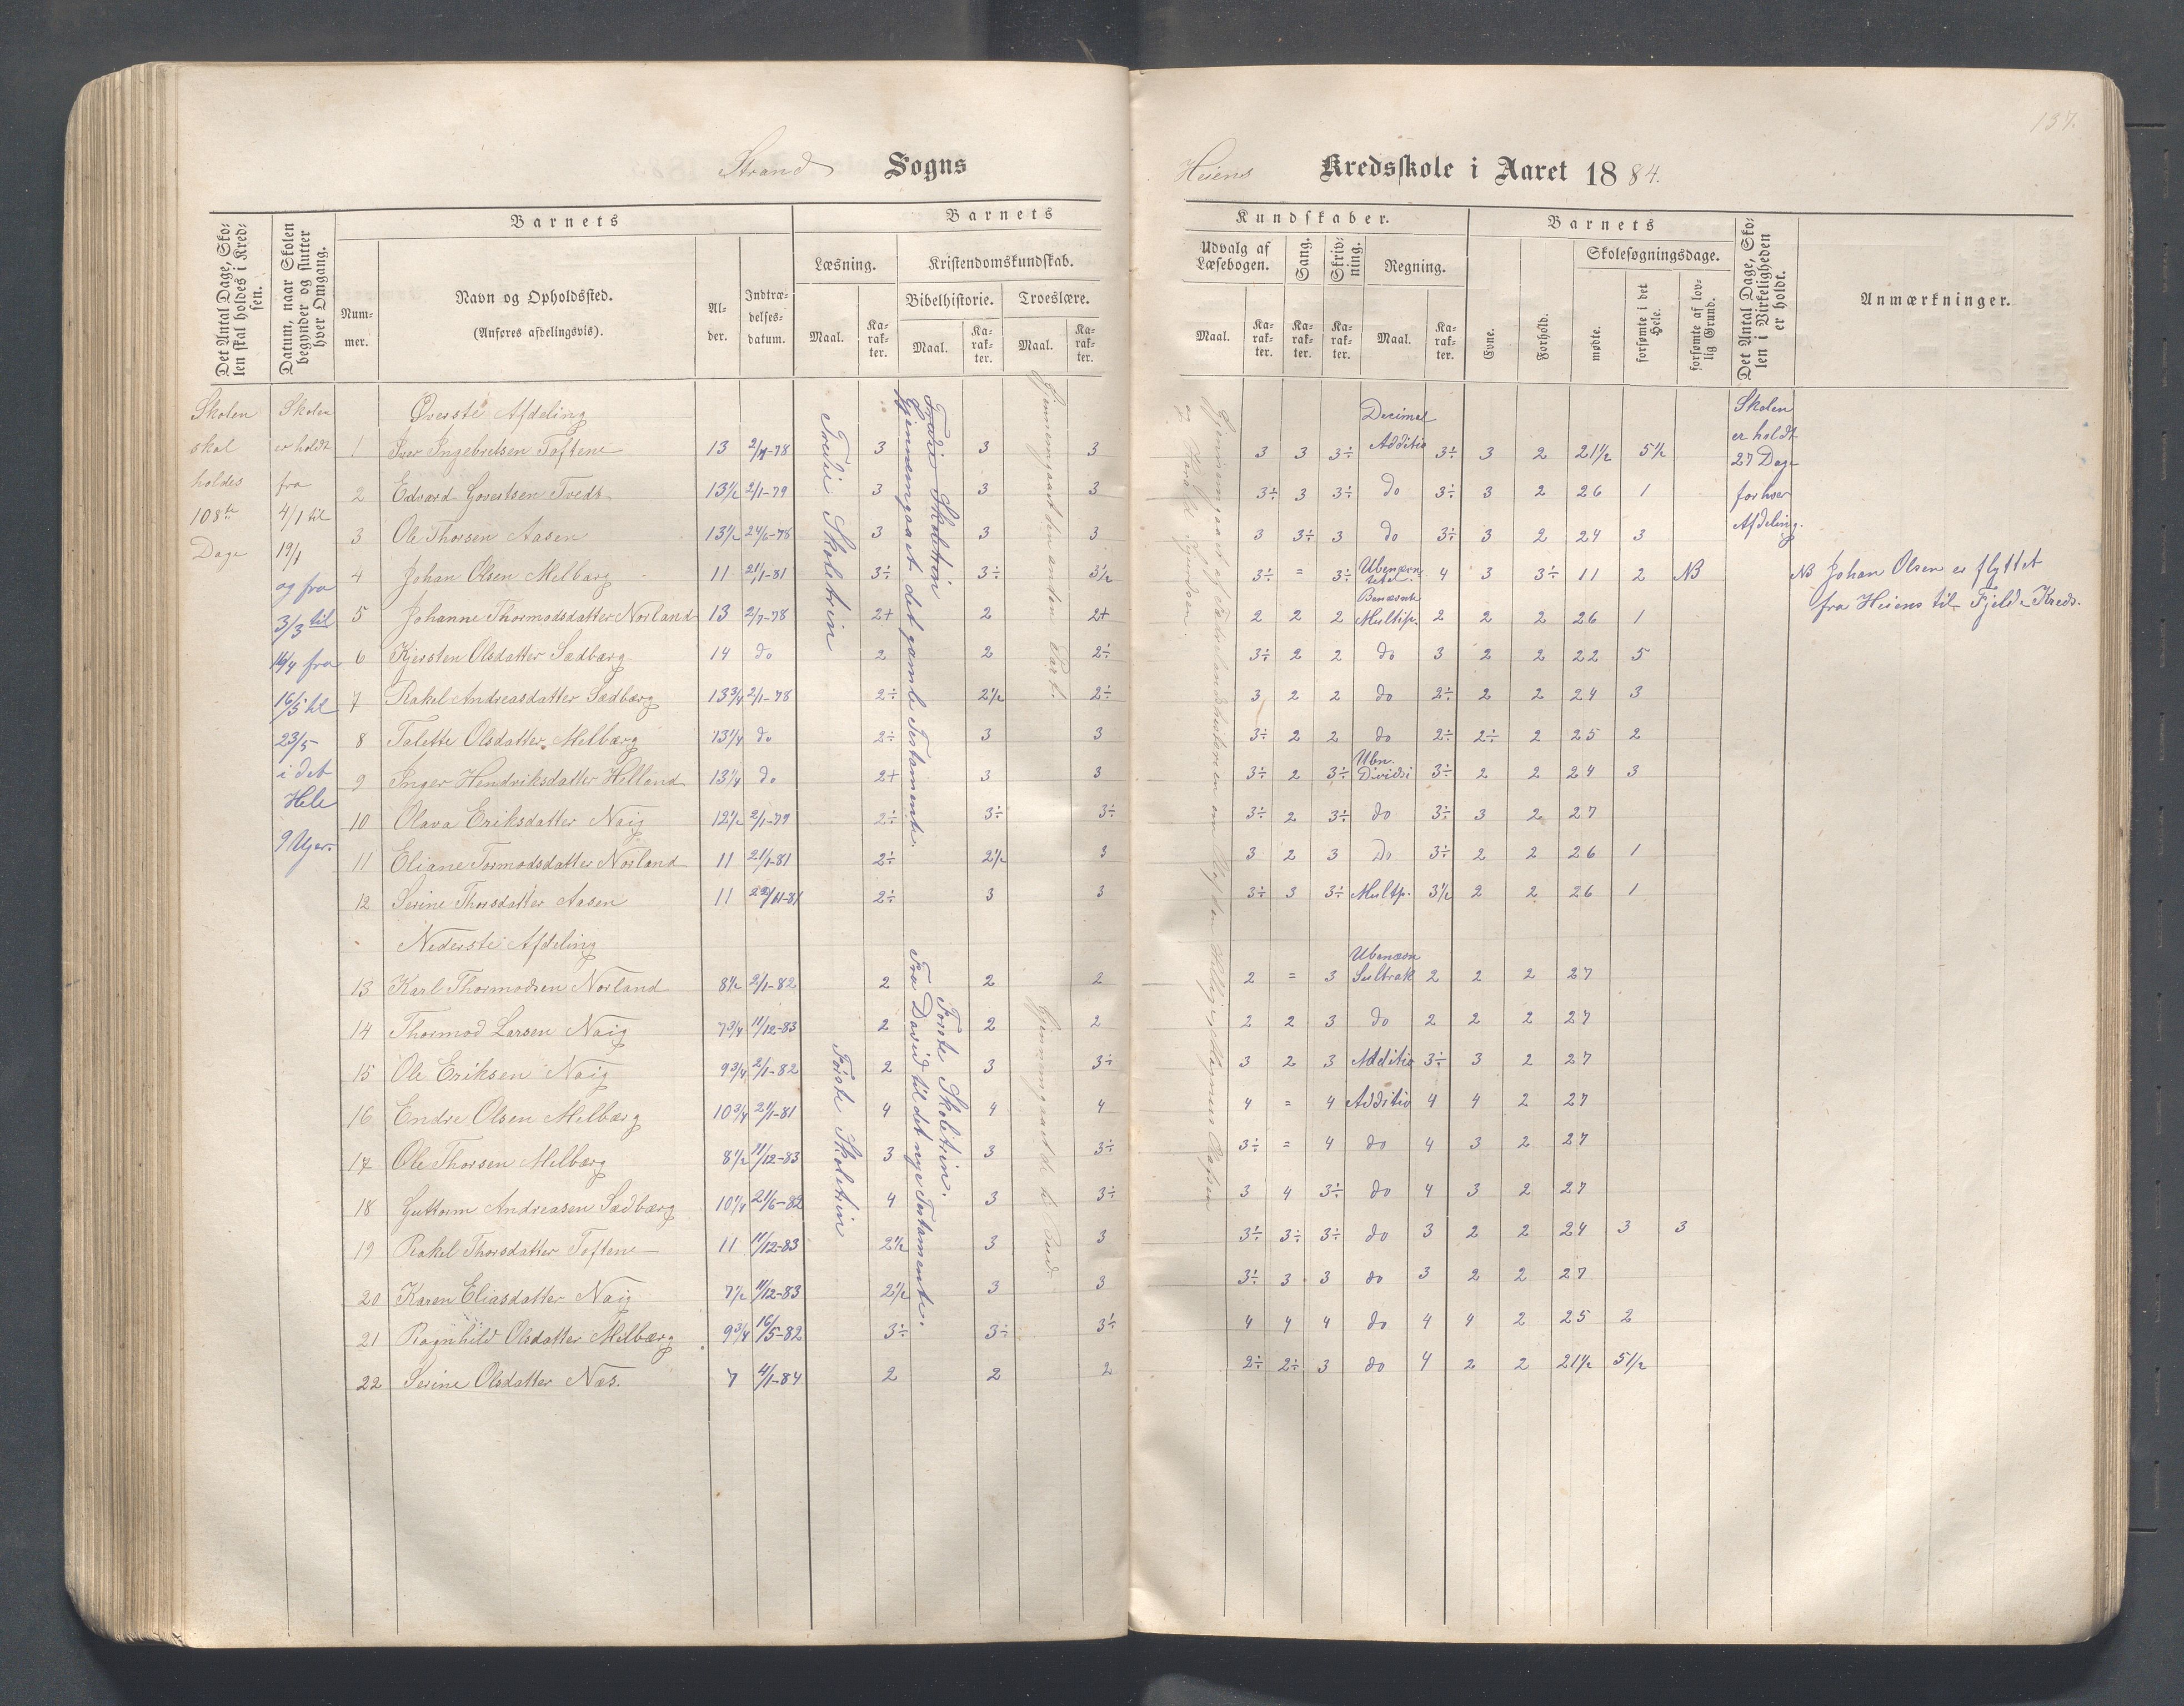 137.
Strand Sogns
Heiens Kredsskole i Aaret 1884.
Det Antal Dage, Skolen skal holdes i Kredsen.
Datum, naar Skolen begynder og slutter hver Omgang.
Barnets
Nummer.
Navn og Opholdssted.
(Anføres afdelingsvis).
Alder.
Indtrædelsesdatum.
Barnets
Læsning.
Kristendomskundskab.
Bibelhistorie. Troeslære.
Maal. Karakter. Maal. Karakter. Maal. Karakter.
Kundskaber.
Udvalg af Læsebogen. Sang. Skrivning. Regning.
Maal. Karakter. Karakter. Karakter. Maal. Karakter.
Barnets
Evne. Forhold.
Skolesøgningsdage.
mødte. forsømte i det Hele. forsømte af lovlig Grund.
Det Antal Dage, Skolen i Virkeligheden er holdt.
Anmærkninger.
Skolen skal holdes 108te Dage
Skolen er holdt fra 4/1 til 19/1 og fra 3/3 til 16/4 fra 16/5 til 23/5 i det Hele 9 Uger.
Øverste Afdeling
1 Iver Ingebretsen Toftene 13 2/7-78 3 3 3 3 3 3÷ Decimal Additio 3÷ 3 2 21½ 5½
2 Edvard Govertsen Tvedt 13½ 2/1-79 3 3 3 3÷ 3 3÷ do 3÷ 3 2 26 1
3 Ole Thorsen Aasen 13½ 24/6-78 3 3 3 3 3÷ 3 do 3÷ 3 2 24 3
4 Johan Olsen Melbærg 11 21/1-81 3÷ 3÷ 3½ 3÷ = 3÷ 4 3 3÷ 11 2 NB
5 Johanne Thormodsdatter Norland 13 2/7-78 2+ 2 2+ 2 2 2 Benævnte Multip. 2 2 2 26 1
6 Kjersten Olsdatter Sædbærg 14 do 2 2 2÷ 3÷ 2 2 do 3 2 2 22 5
7 Rakel Andreasdatter Sædbærg 13¾ 2/1-78 2÷ 2½ 2÷ 3 2 2 do 2÷ 2 2 24 3
8 Talette Olsdatter Melbærg 13¼ do 2÷ 3 3 3÷ 2 2 do 2÷ 2÷ 2 25 2
9 Inger Hendriksdatter Helland 13¼ do 2+ 3 3 3÷ 2 3÷ Ubn. Dividsi 3÷ 2 2 24 3
10 Olava Eriksdatter Naig 12½ 2/1-79 2÷ 3÷ 3÷ 3÷ 2 3÷ do 3÷ 3 2 27
11 Eliane Tormodsdatter Norland 11 21/1-81 2÷ 2½ 3 3 2 3 Do 3÷ 2 2 26 1
12 Serine Thorsdatter Aasen 11 22/11-81 2÷ 3 3 3÷ 3 3÷ Multp. 3½ 2 2 26 1
Nederste Afdeling
13 Karl Thormodsen Norland 8½ 2/1-82 2 2 2 2 = 3 Ubenævn Subtrak 2 2 2 27
14 Thormod Larsen Naig 7¾ 11/12-83 2 2 2 2 2 3 do 2 2 2 27
15 Ole Eriksen Naig 9¾ 2/1-82 2 3 3÷ 3 2 3 Additio 3÷ 3 2 27
16 Endre Olsen Melbærg 10¾ 21/1-81 4 4 4 4 = 4 Additio 4 4 2 27
17 Ole Thorsen Melbærg 8½ 11/12-83 3 3 3÷ 3÷ = 4 do 4 3 2 27
18 Guttorm Andreasen Sædbærg 10¼ 21/6-82 4 3 3÷ 3 4 3÷ do 4 3 2 27
19 Rakel Thorsdatter Toftene 11 11/12-83 2½ 3 3 3÷ 3÷ 3÷ do 3 2 2 24 3 3
20 Karen Eliasdatter Naig 7½ 11/12-83 2½ 3 3 3÷ 3 3 do 3 2 2 27
21 Ragnhild Olsdatter Melbærg 9¾ 16/5-82 3÷ 3÷ 3÷ 4 4 4 do 4 4 2 25 2
22 Serine Olsdatter Næs. 7 4/1-84 2 2 2 2÷ 2÷ 3 do 4 2 2 21½ 5½
Tredie Skoletrin
Tredie Skoletrin
Gjennemgaaet det gamle Testamente.
Gjennemgaaet den anden Part.
Første Skoletrin
Første Skoletrin.
Fra David til det nye Testamente.
Gjennemgaaet de ti Bud.
Gjennemgaaet af Fædrelandshistorien om Olaf den Hellige, Magnus
og Harald
Skolen er holdt 27 Dage for hver Afdeling.
NB Johan Olsen er flyttet
fra Heiens til Fjelde Kreds.